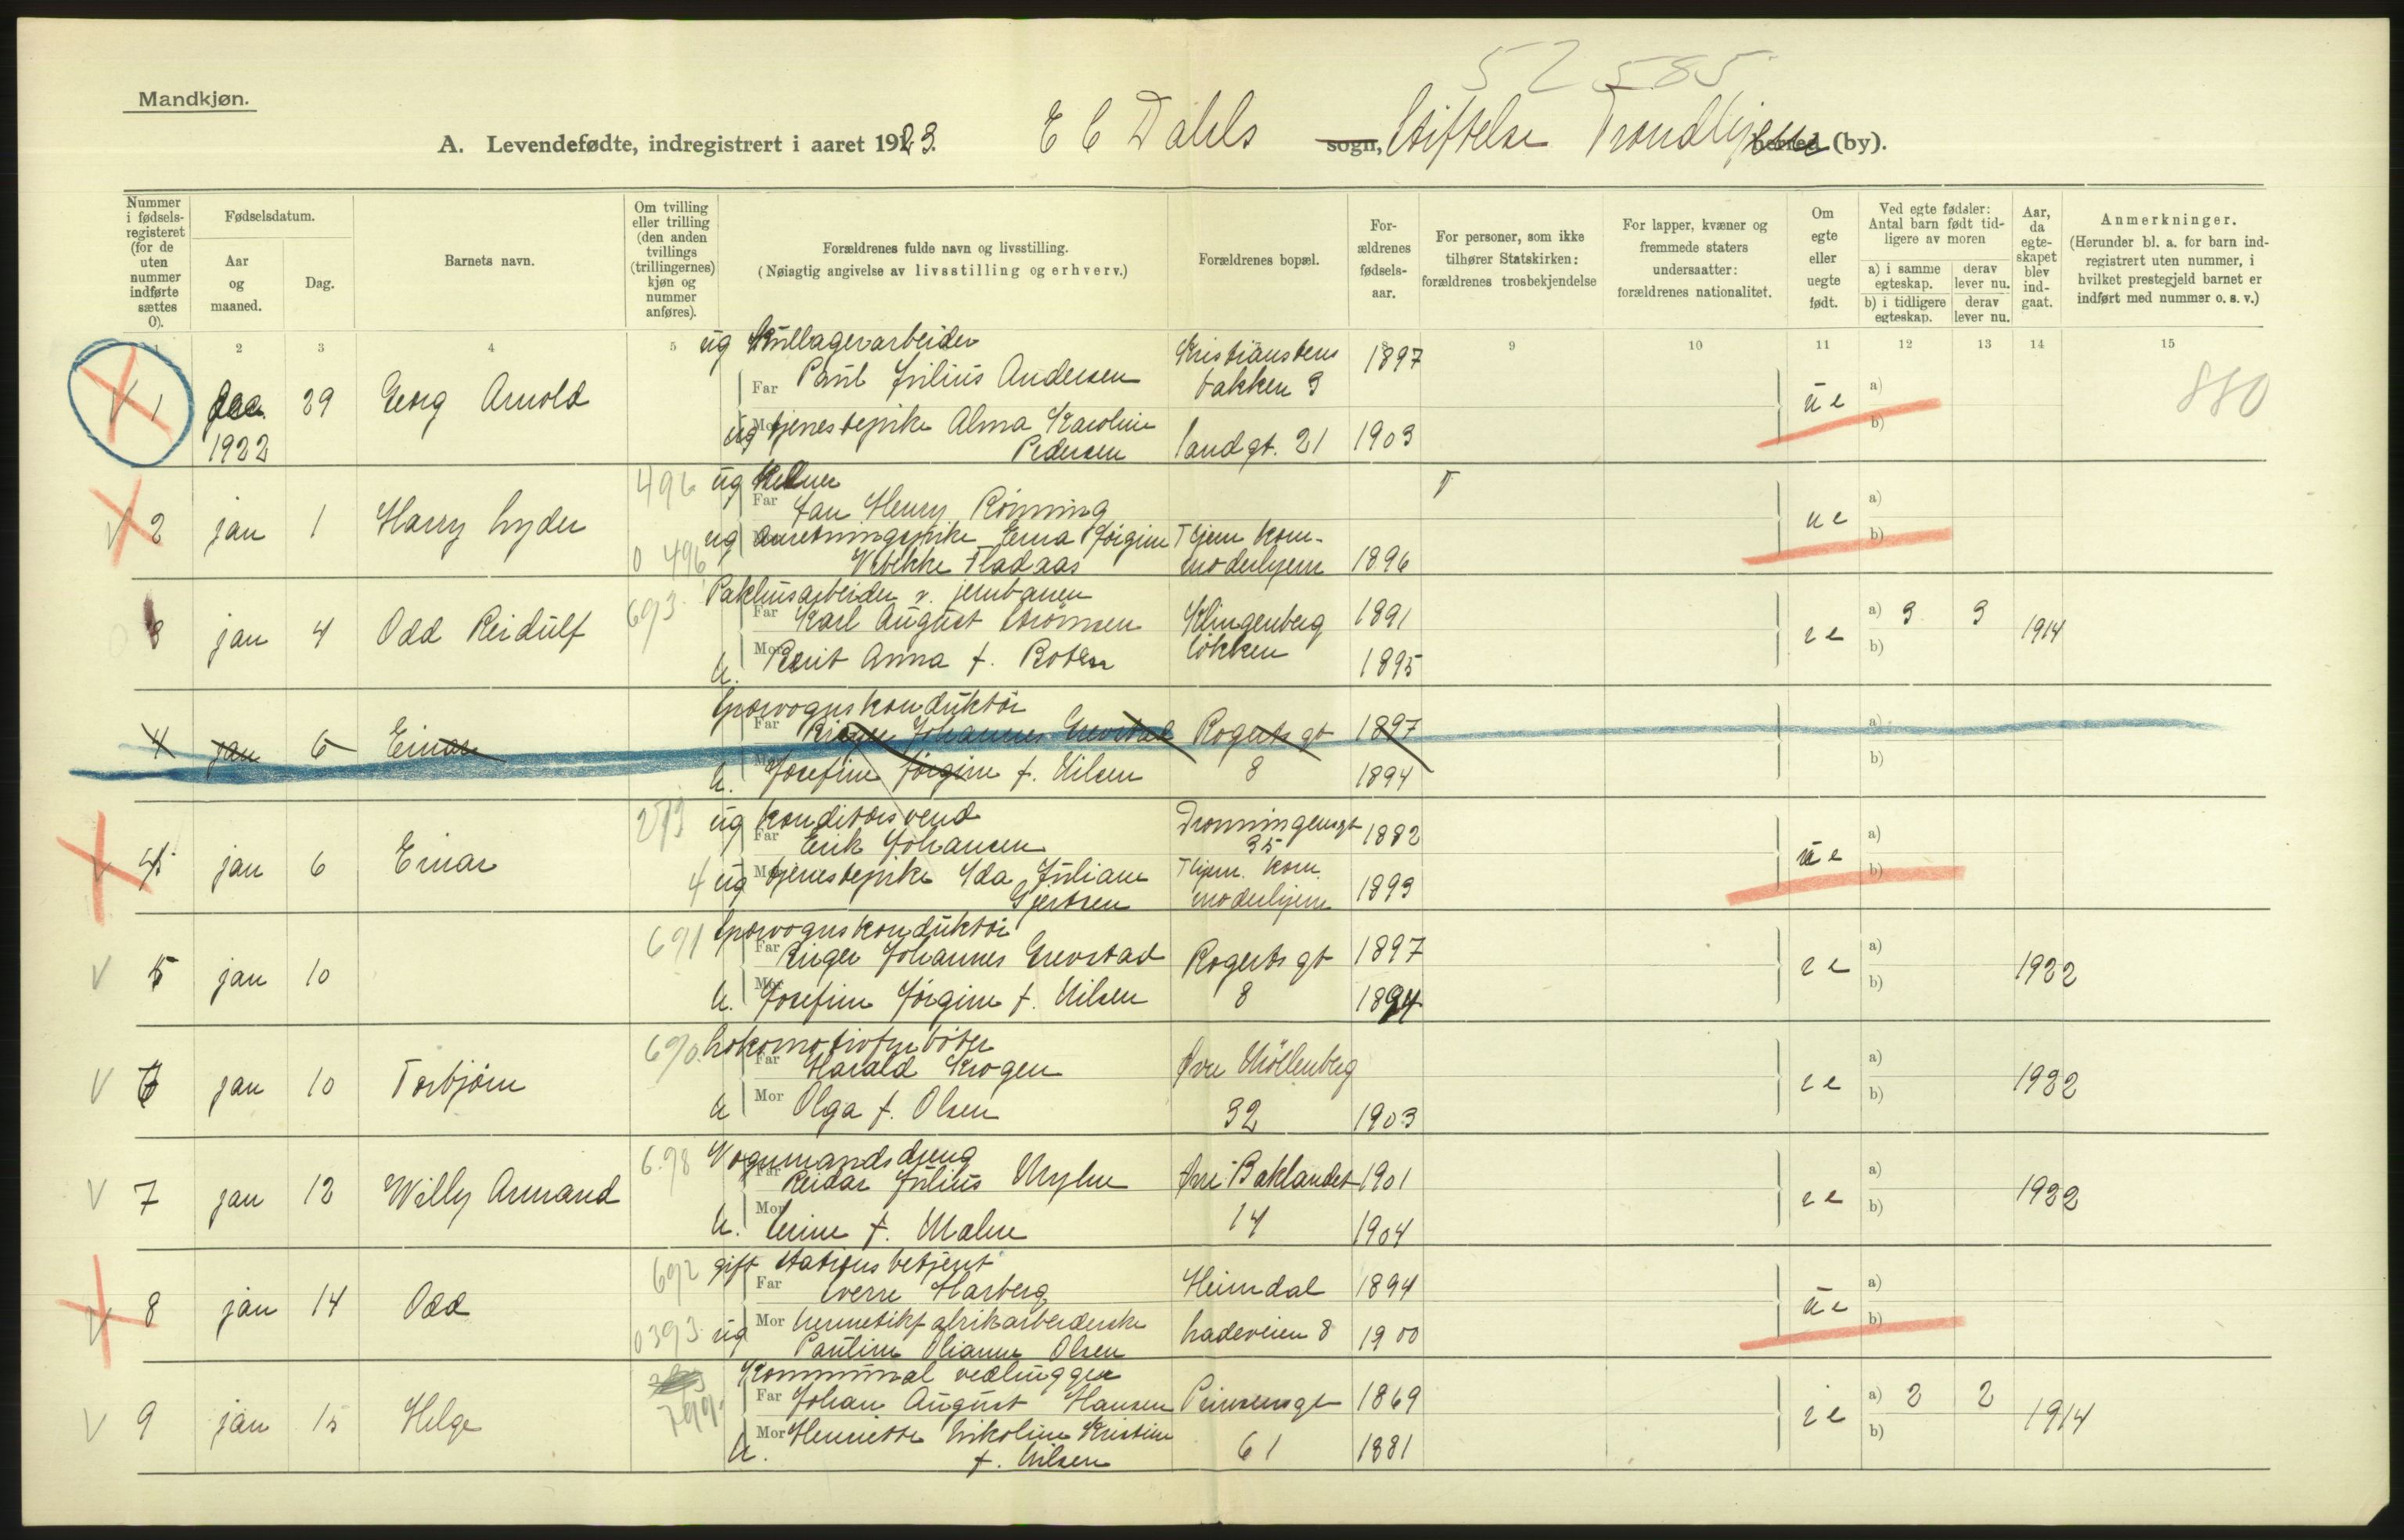 52 585
Mandkjøn.
A. Levendefødte, indregistrert i aaret 1923. E C Dahls sogn, Stiftelse Trondhjem herred (by).
Nummer i fødsels-registeret (for de uten nummer indførte sættes 0).
Fødselsdatum.
Aar og maaned.
Dag.
Barnets navn.
Om tvilling eller trilling (den anden tvillings (trillingernes) kjøn og nummer anføres).
Forældrenes fulde navn og livsstilling.
(Nøiagtig angivelse av livsstilling og erhverv.)
Forældrenes bopæl.
For-ældrenes fødsels-aar.
For personer, som ikke tilhører Statskirken: forældrenes trosbekjendelse
For lapper, kvæner og fremmede staters undersaatter: forældrenes nationalitet.
Om egte eller uegte født.
Ved egte fødsler: Antal barn født tid-ligere av moren
a) i samme egteskap.
derav lever nu.
b) i tidligere egteskap.
derav lever nu.
Aar, da egte-skapet blev ind-gaat.
Anmerkninger.
(Herunder bl. a. for barn ind-registrert uten nummer, i hvilket prestegjeld barnet er indført med nummer o. s. v.)
1 2 3 4 5 8 9 10 11 12 13 14 15
ug Kullagerarbeider
V 1 dec. 29 Georg Arnold Far Paul Julius Andersen Kristianstens bakken 3 1897 ue a) 880
1922 ug Mor tjenestepike Alma Karoline Pedersen Sandgt. 21 1903 b)
496 ug Kelner
V 2 jan 1 Harry Lyder Far Jan Henry Rønning ue a)
0 496 ug anretningspike Erna Jørgine Vibekke Fladaas Thjem kom. moderhjem 1896 b)
693 Pakhusarbeider v. jernbanen
3 jan 4 Odd Reidulf Far Karl August Strømsen Klingenberg løkken 1891 ee a) 3 3 1914
h. Mor Berit Anna f. Roten 1895 b)
Sporvognskonduktør
4 jan 6 Einar Far Birger Johannes Grevstad Rogerts gt 1897 a)
h. Josefine Jørgine f. Nilsen 8 1894 b)
273 ug konditorsvend
V 4 jan 6 Einar Far Erik Johansen Dronningensgt 35 1882 ue a)
4 ug Mor tjenestepike Ida Juliane Gjertsen Thjem. kom. moderhjem 1893 b)
691 Sporvognskonduktør
V 5 jan 10 Far Birger Johannes Grevstad Rogerts gt 1897 ee a) 1922
h. Mor Josefine Jørgine f. Nilsen 8 1894 b)
690. Lokomotivfyrbøter
V 6 jan 10 Torbjørn Far Harald Krogen Øvre Møllenberg ee a) 1922
h Mor Olga f. Olsen 32 1903 b)
698 Vognmandsdreng
V 7 jan 12 Willy Armand Far Reidar Julius Myhre Øvre Baklandet 1901 ee a) 1922
h. Mor f. Malm 14 1904 b)
692 gift stationsbetjent
V 8 jan 14 Odd Far Sverre Harberg Heimdal 1894 ue a)
0393 ug Mor hermetikfabrikarbeiderske Pauline Olianne Olsen Ladeveien 8 1900 b)
Kommunal vedhugger
V 9 jan 15 Helge 799. Far Johan August Hansen Prinsensgt 1869 ee a) 2 2 1914
h. Mor Henriette Nikoline Kristine f. Nilsen 61 1881 b)